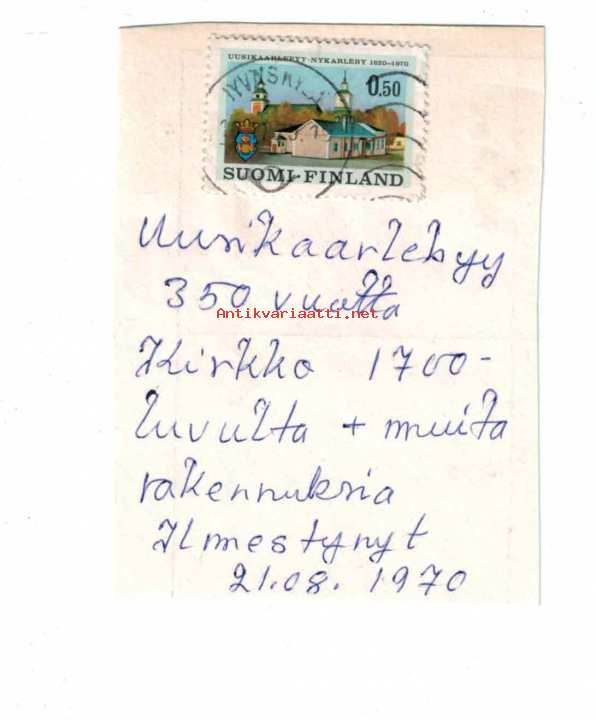 UUSIKAARLEPYY-NYKARLEBY 1620-1970
0,50
JYVÄSKYLÄ
SUOMI-FINLAND
Uusikaarlebyy
350 vuotta
Antikvariaatti.net
Kirkko 1700-
luvulta + muita
rakennuksia
Ilmestynyt
21.08. 1970